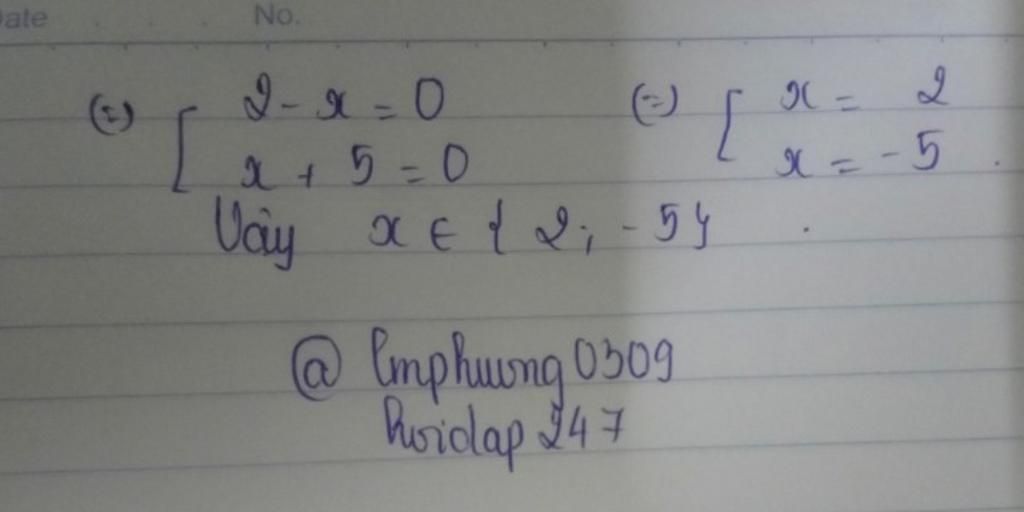 Date No.
(=) [ 2 - x = 0 (=) [ x = 2
x + 5 = 0 x = -5 .
Vậy x ∈ { 2; -5} .
@ lmphuong0309
hoidap247